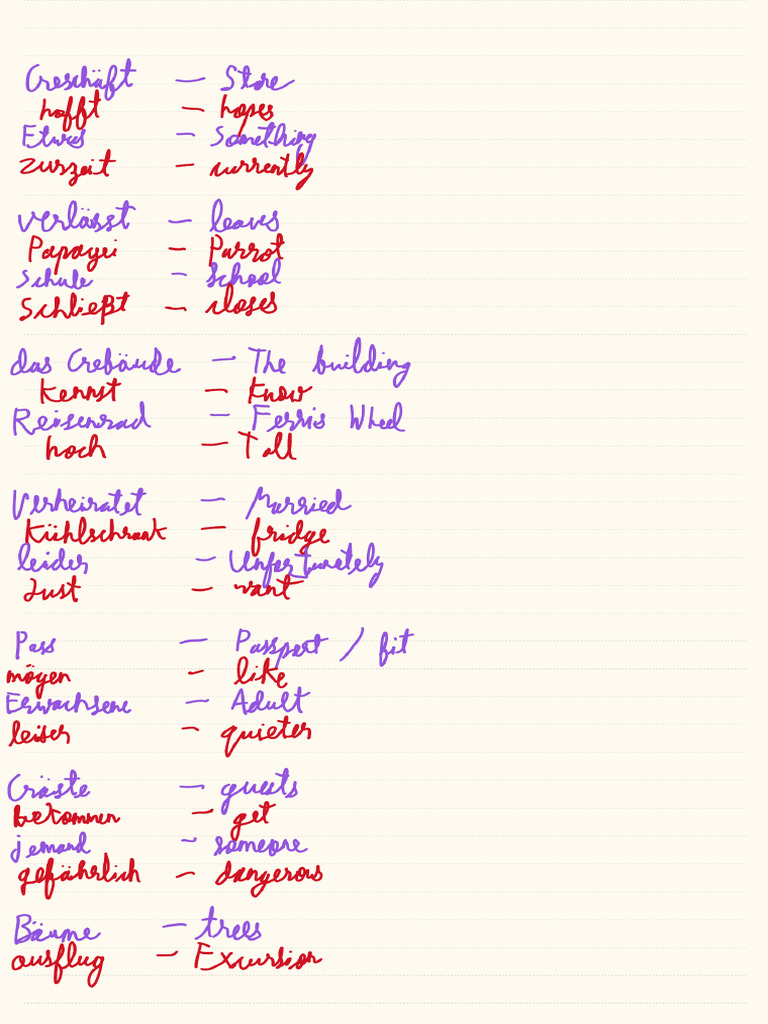 Geschäft — Store
hofft — hopes
Etwas — Something
zurzeit — currently
verlässt — leaves
Papagei — Parrot
Schule — School
Schließt — closes
das Gebäude — The building
Kennst — Know
Reisenrad — Ferris Wheel
hoch — Tall
Verheiratet — Married
Kühlschrank — fridge
leider — Unfortunately
Lust — want
Pass — Passport / fit
mögen — like
Erwachsene — Adult
leiser — quieter
Gäste — guests
bekommen — get
jemand — someone
gefährlich — dangerous
Bäume — trees
ausflug — Excursion